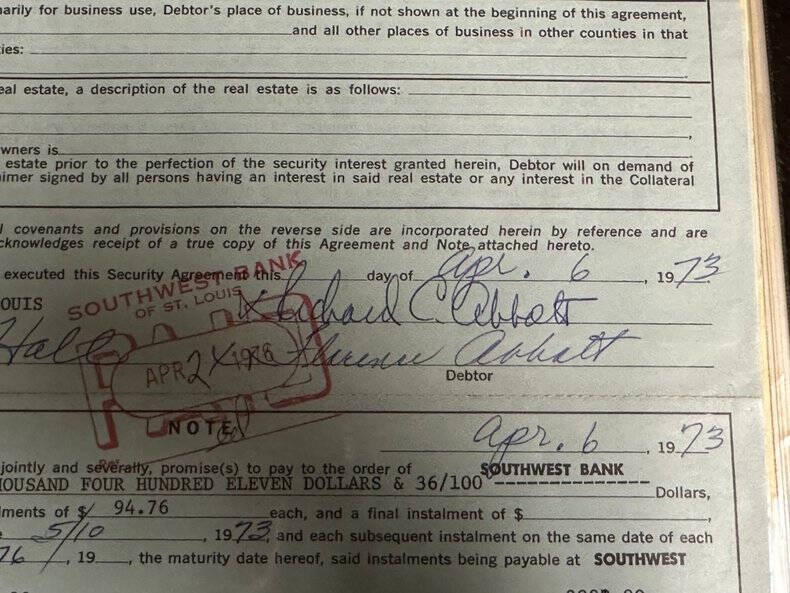 arily for business use, Debtor's place of business, if not shown at the beginning of this agreement,
and all other places of business in other counties in that
ies:
eal estate, a description of the real estate is as follows:
,
wners is
estate prior to the perfection of the security interest granted herein, Debtor will on demand of
imer signed by all persons having an interest in said real estate or any interest in the Collateral
l covenants and provisions on the reverse side are incorporated herein by reference and are
cknowledges receipt of a true copy of this Agreement and Note attached hereto.
executed this Security Agreement this day of Apr. 6, 1973
SOUTHWEST BANK
OF ST. LOUIS
OUIS
X Richard C. Abbott
Hall
X Florence Abbott
APR 2 1976
Debtor
NOTE
Apr. 6, 1973
jointly and severally, promise(s) to pay to the order of SOUTHWEST BANK
OUSAND FOUR HUNDRED ELEVEN DOLLARS & 36/100 --------------- Dollars,
lments of $ 94.76 each, and a final instalment of $ ,
5/10, 1973, and each subsequent instalment on the same date of each
76, 19 , the maturity date hereof, said instalments being payable at SOUTHWEST